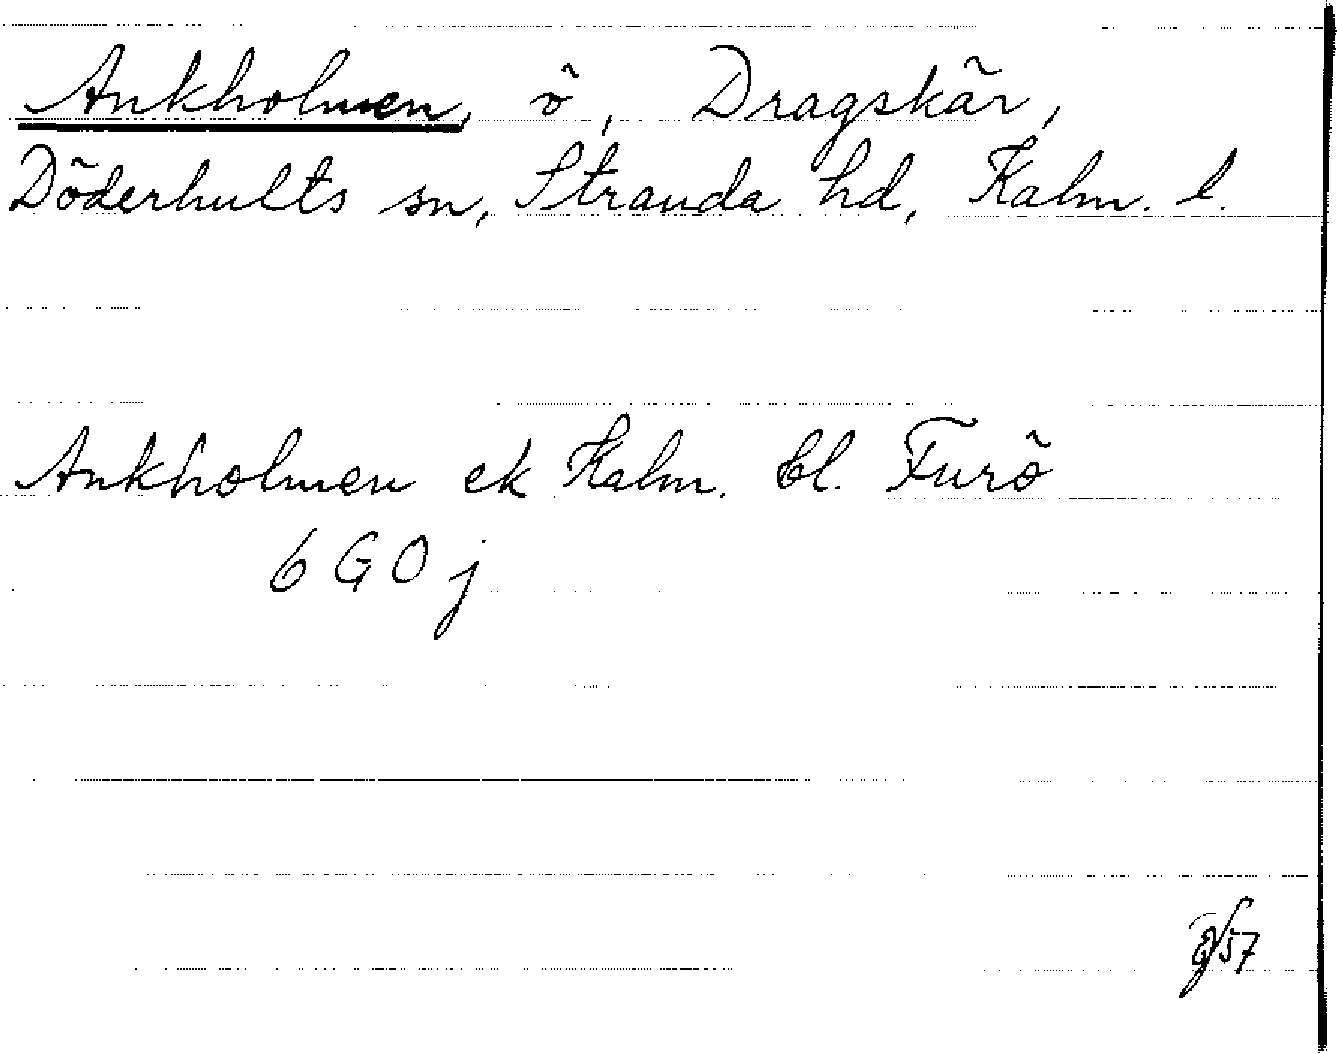 Ankholmen, ö, Dragskär,
Döderhults sn, Stranda hd, Kalm. l.
Ankholmen ek Kalm. bl. Furö
6 G 0 j
57